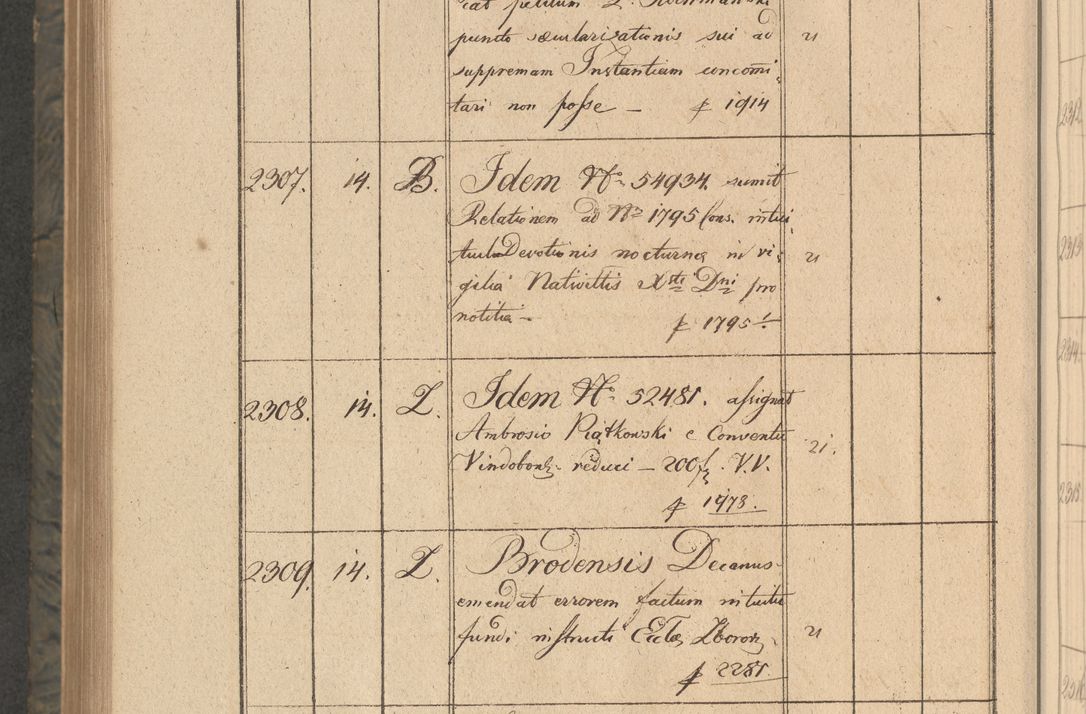 puncto sæcularisationis sui ad 21
suppremam Instantiam concomi
tari non posse — p 1914
2307. 14. B. Idem No 54934. sumit
Relationem ad No 1795 Cons. intui
tu Devotionis nocturnæ in vi- 21
gilia Nativittis Xsti Dni pro
notitia — p 1795
2308. 14. Z. Idem No 52481. assignat
Ambrosio Piątkowski e Conventu 21.
Vindobon. reduci — 200 f. V.V.
p 1978.
2309. 14. Z. Brodensis Decanus
emendat errorem factum intuitu
fundi instructi Ecclæ Zborow. 21
p 2281.
2312
2313
2314
2315